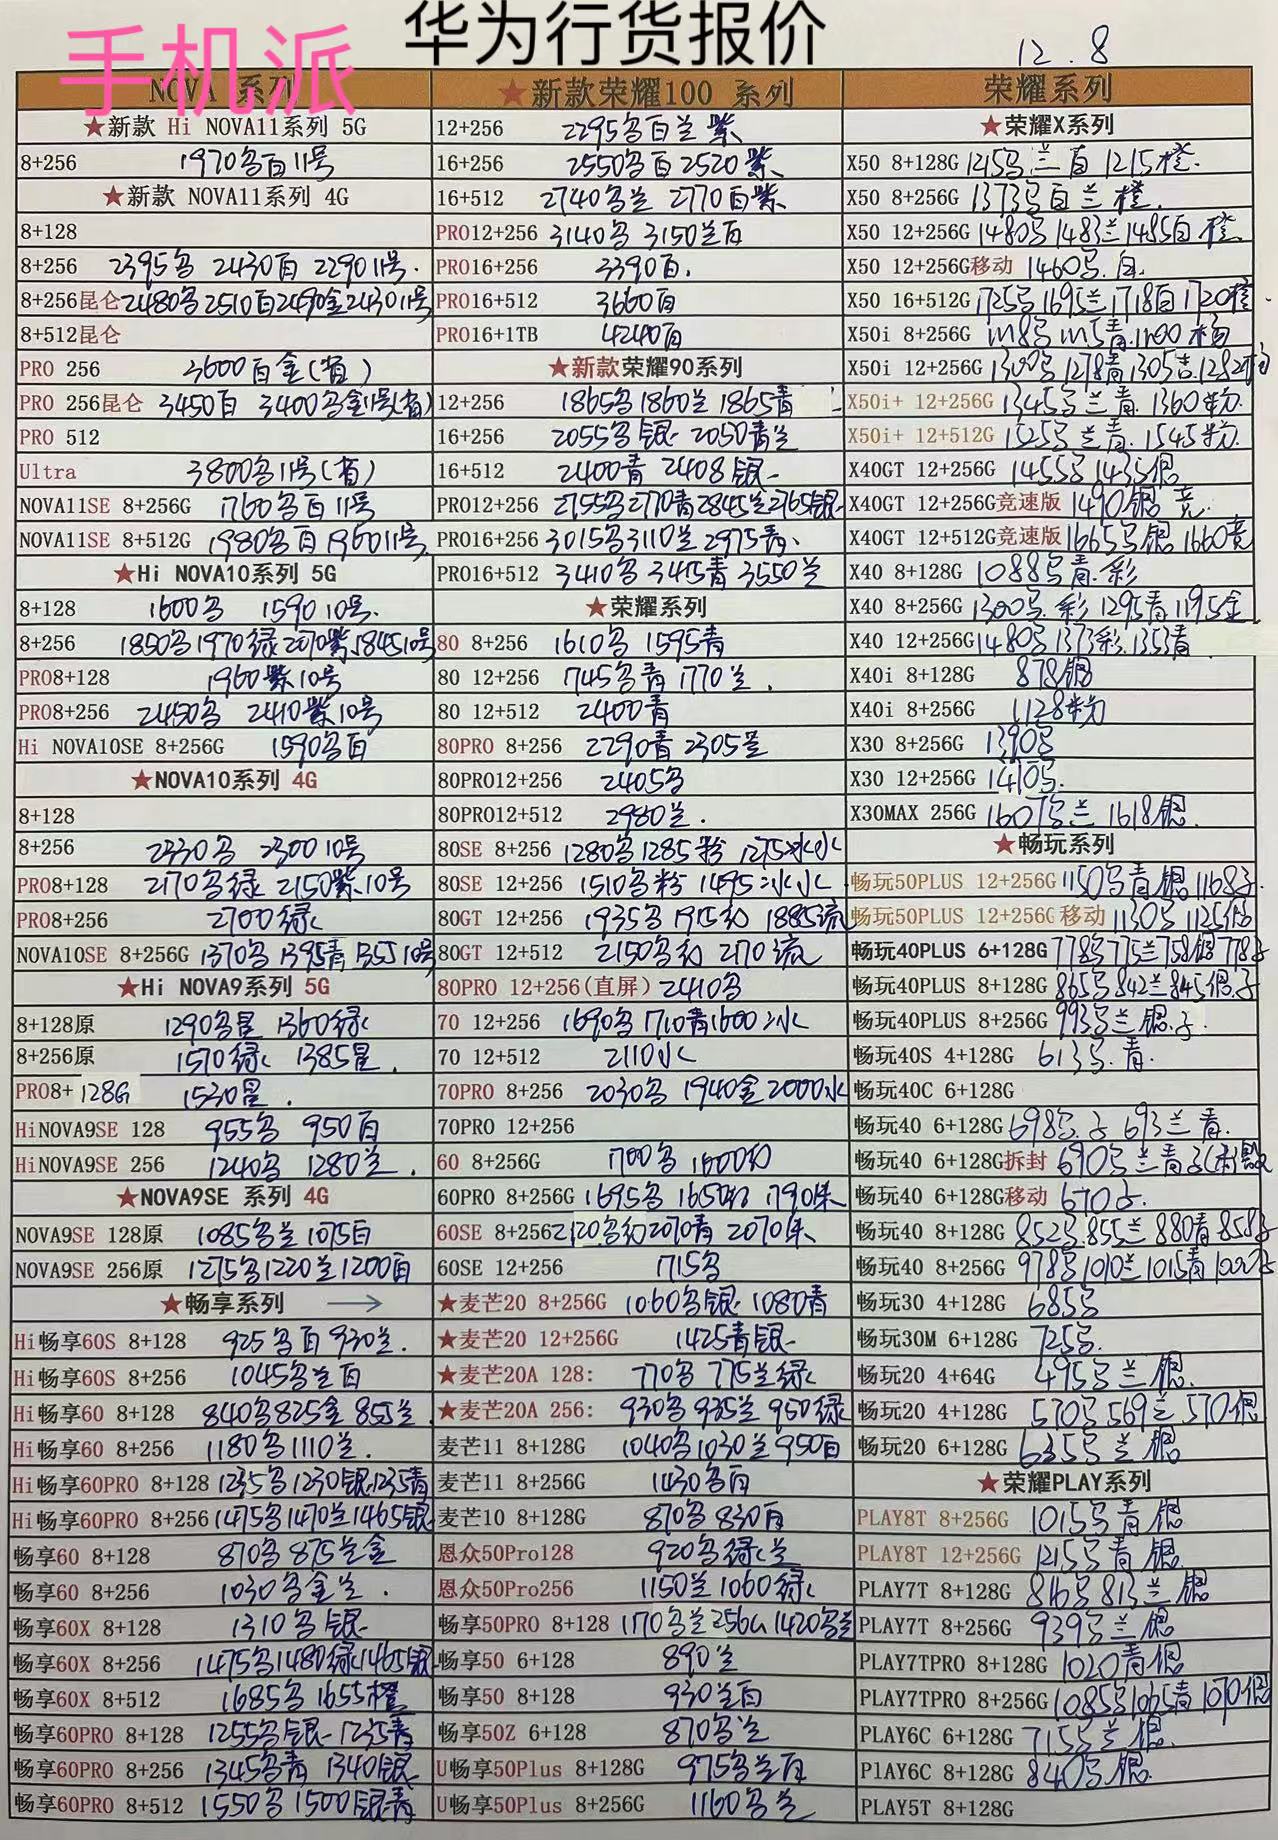 华为行货报价
手机派
12.8
NOVA 系列
★新款 Hi NOVA11系列 5G
8+256 1970名百11号
★新款 NOVA11系列 4G
8+128
8+256 2395名 2430百 2290 11号.
8+256昆仑 2480名2510百2490金2430 11号
8+512昆仑
PRO 256 3600百金(省)
PRO 256昆仑 3450百 3400名金11号(省)
PRO 512
Ultra 3800名11号(省)
NOVA11SE 8+256G 1760名百11号
NOVA11SE 8+512G 1980名百1960 11号
★Hi NOVA10系列 5G
8+128 1600名 1590 10号.
8+256 1850名1970绿2070紫1845 10号
PRO8+128 1960紫10号
PRO8+256 2450名 2410紫10号
Hi NOVA10SE 8+256G 1590名百
★NOVA10系列 4G
8+128
8+256 2330名 2300 10号
PRO8+128 2170名绿 2150紫10号
PRO8+256 2700绿
NOVA10SE 8+256G 1370名1395青1355 10号
★Hi NOVA9系列 5G
8+128原 1290名星 1360绿
8+256原 1570绿 1385星.
PRO8+128G 1530星.
HiNOVA9SE 128 955名 950百
HiNOVA9SE 256 1240名 1280兰.
★NOVA9SE 系列 4G
NOVA9SE 128原 1085名兰1075白
NOVA9SE 256原 1275名1220兰1200百
★畅享系列 →
Hi畅享60S 8+128 925名百930兰.
Hi畅享60S 8+256 1045名兰百
Hi畅享60 8+128 840名825金855兰
Hi畅享60 8+256 1180名1110兰.
Hi畅享60PRO 8+128 1235名1230银1235青
Hi畅享60PRO 8+256 1475名1470兰1465银
畅享60 8+128 870名875兰金
畅享60 8+256 1030名金兰.
畅享60X 8+128 1310名银
畅享60X 8+256 1475名1480绿1465银
畅享60X 8+512 1685名1655橙
畅享60PRO 8+128 1255名银1235青
畅享60PRO 8+256 1345名青 1340银
畅享60PRO 8+512 1550名1500银青
★新款荣耀100 系列
12+256 2295名百兰紫
16+256 2550名百2520紫
16+512 2740名兰 2770百紫
PRO12+256 3140名 3150兰百
PRO16+256 3390百.
PRO16+512 3660百
PRO16+1TB 4240百
★新款荣耀90系列
12+256 1865名1860兰1865青
16+256 2055名银2050青兰
16+512 2400青 2408银
PRO12+256 2755名2770青2845兰2765银
PRO16+256 3015名3110兰2975青
PRO16+512 3410名3415青3550兰
★荣耀系列
80 8+256 1610名 1595青
80 12+256 1745名青1770兰.
80 12+512 2400青
80PRO 8+256 2290青2305兰
80PRO12+256 2405名
80PRO12+512 2980兰.
80SE 8+256 1280名1285粉 1275冰水
80SE 12+256 1510名粉1495冰水
80GT 12+256 1935名1915幻1885流
80GT 12+512 2150名幻2170流
80PRO 12+256(直屏) 2410名
70 12+256 1690名1710青1600冰
70 12+512 2110水
70PRO 8+256 2030名 1940金2000水
70PRO 12+256
60 8+256G 1700名1600幻
60PRO 8+256G 1695名1650幻1790朱
60SE 8+256 2120名幻2070青2070朱
60SE 12+256 1715名
★麦芒20 8+256G 1060名银1080青
★麦芒20 12+256G 1425青银
★麦芒20A 128: 770名 775兰绿
★麦芒20A 256: 930名935兰950绿
麦芒11 8+128G 1040名1030兰950百
麦芒11 8+256G 1430名百
麦芒10 8+128G 870名830百
恩众50Pro128 920名绿兰
恩众50Pro256 1150兰1060绿
畅享50PRO 8+128 1170名兰256G1420名兰
畅享50 6+128 890兰
畅享50 8+128 930兰百
畅享50Z 6+128 870名兰
U畅享50Plus 8+128G 975名兰百
U畅享50Plus 8+256G 1160名兰
荣耀系列
★荣耀X系列
X50 8+128G 1215名兰百1215橙.
X50 8+256G 1373名百兰橙.
X50 12+256G 1480名1483兰1485白橙
X50 12+256G移动 1460名.白.
X50 16+512G 1725名1695兰1718百1720橙
X50i 8+256G 1118名1115青1100
X50i 12+256G 1300名1278青1305兰1282
X50i+ 12+256G 1345名兰青.1360粉
X50i+ 12+512G 1525名兰青.1545粉.
X40GT 12+256G 1455名1435银
X40GT 12+256G竞速版 1490银竞
X40GT 12+512G竞速版 1665名银1660竞
X40 8+128G 1088名青.彩
X40 8+256G 1300名.彩1295青1195金
X40 12+256G 1480名1373彩1353青
X40i 8+128G 878银
X40i 8+256G 1128粉
X30 8+256G 1390名
X30 12+256G 1410名.
X30MAX 256G 1607名兰1618银.
★畅玩系列
畅玩50PLUS 12+256G 1150名青银1168子
畅玩50PLUS 12+256G 移动 1130名1125银
畅玩40PLUS 6+128G 778名775兰758银778子
畅玩40PLUS 8+128G 865名842兰845银.子
畅玩40PLUS 8+256G 993名兰银.子.
畅玩40S 4+128G 613名.青.
畅玩40C 6+128G
畅玩40 6+128G 698名.子693兰青.
畅玩40 6+128G拆封 690名兰青子
畅玩40 6+128G移动 670子.
畅玩40 8+128G 852名.855兰880青858子
畅玩40 8+256G 978名1010兰1015青1000子
畅玩30 4+128G 685名
畅玩30M 6+128G 725名.
畅玩20 4+64G 495名兰银.
畅玩20 4+128G 570名569兰570银
畅玩20 6+128G 635名兰银
★荣耀PLAY系列
PLAY8T 8+256G 1015名青银
PLAY8T 12+256G 1215名青银.
PLAY7T 8+128G 816名813兰银
PLAY7T 8+256G 939名兰银
PLAY7TPRO 8+128G 1020青银
PLAY7TPRO 8+256G 1085名1065青1070银
PLAY6C 6+128G 715名兰银.
PlAY6C 8+128G 840名银.
PLAY5T 8+128G